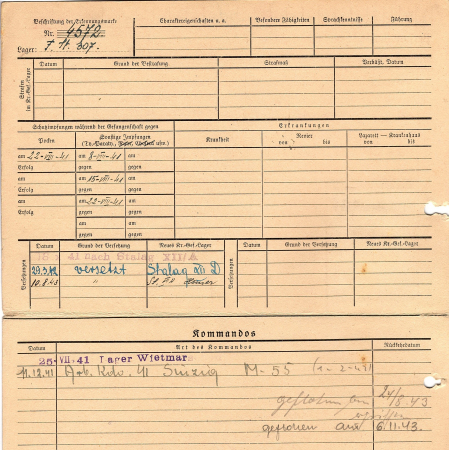 Beschriftung der Erkennungsmarke
Nr. 4572
Lager: F. St. 307.
Charaktereigenschaften u. a.
Besondere Fähigkeiten
Sprachkenntnisse
Führung
Strafen im Kr.-Gef.-Lager
Datum
Grund der Bestrafung
Strafmaß
Verbüßt, Datum
Schutzimpfungen während der Gefangenschaft gegen
Erkrankungen
Pocken
Sonstige Impfungen
(Ty.-Paraty., Ruhr, Cholera usw.)
Krankheit
Revier
von bis
Lazarett — Krankenhaus
von bis
am 22-VII-41 am 8-VII-41
Erfolg gegen
am am 15-VII-41
Erfolg gegen
am am 22-VII-41
Erfolg gegen
am
gegen
am
gegen
Versetzungen
Datum
Grund der Versetzung
Neues Kr.-Gef.-Lager
Versetzungen
Datum
Grund der Versetzung
Neues Kr.-Gef.-Lager
41 nach Stalag XII/A
29.3.42 versetzt Stalag XII D
10.8.43 "
Kommandos
Datum
Art des Kommandos
Rückkehrdatum
25. VII. 41 Lager Wietmar
11.12.41 Arb. Kdo. 41 Sinzig M-55
geflohen am 24/8.43
geflohen am 16.11.43.